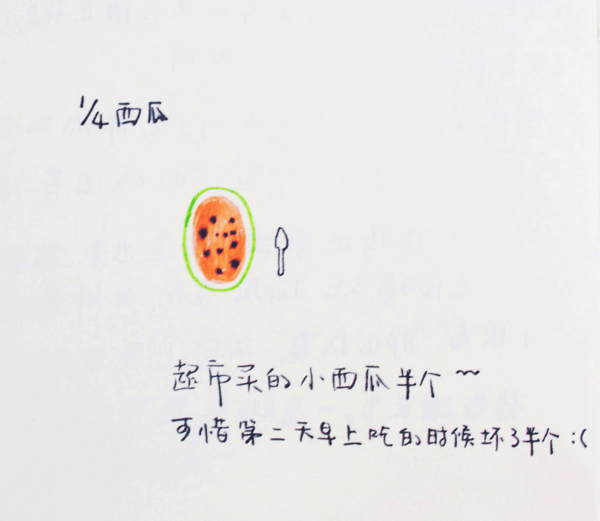 1/4西瓜
超市买的小西瓜半个~~
可惜第二天早上吃的时候坏了半个:(